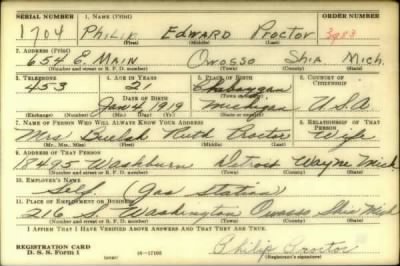 SERIAL NUMBER 1. NAME (Print) ORDER NUMBER
1704 PHILIP EDWARD PROCTOR 3983
(First) (Middle) (Last)
2. ADDRESS (Print)
654 E. MAIN OWOSSO SHIA MICH.
(Number and street or R. F. D. number) (Town) (County) (State)
3. TELEPHONE 4. AGE IN YEARS 5. PLACE OF BIRTH 6. COUNTRY OF CITIZENSHIP
453 21 Cheboygan
DATE OF BIRTH (Town or county)
Jan 4 1919 Michigan U.S.A
(Exchange) (Number) (Mo.) (Day) (Yr.) (State or country)
7. NAME OF PERSON WHO WILL ALWAYS KNOW YOUR ADDRESS 8. RELATIONSHIP OF THAT PERSON
Mrs. Beulah Ruth Proctor Wife
(Mr., Mrs., Miss) (First) (Middle) (Last)
9. ADDRESS OF THAT PERSON
18495 Washburn Detroit Wayne Mich.
(Number and street or R. F. D. number) (Town) (County) (State)
10. EMPLOYER'S NAME
Self (Gas Station)
11. PLACE OF EMPLOYMENT OR BUSINESS
216 S. Washington Owosso Shia Mich
(Number and street or R. F. D. number) (Town) (County) (State)
I AFFIRM THAT I HAVE VERIFIED ABOVE ANSWERS AND THAT THEY ARE TRUE.
REGISTRATION CARD
D. S. S. FORM 1 (over) 16—17105 Philip Proctor
(Registrant's signature)